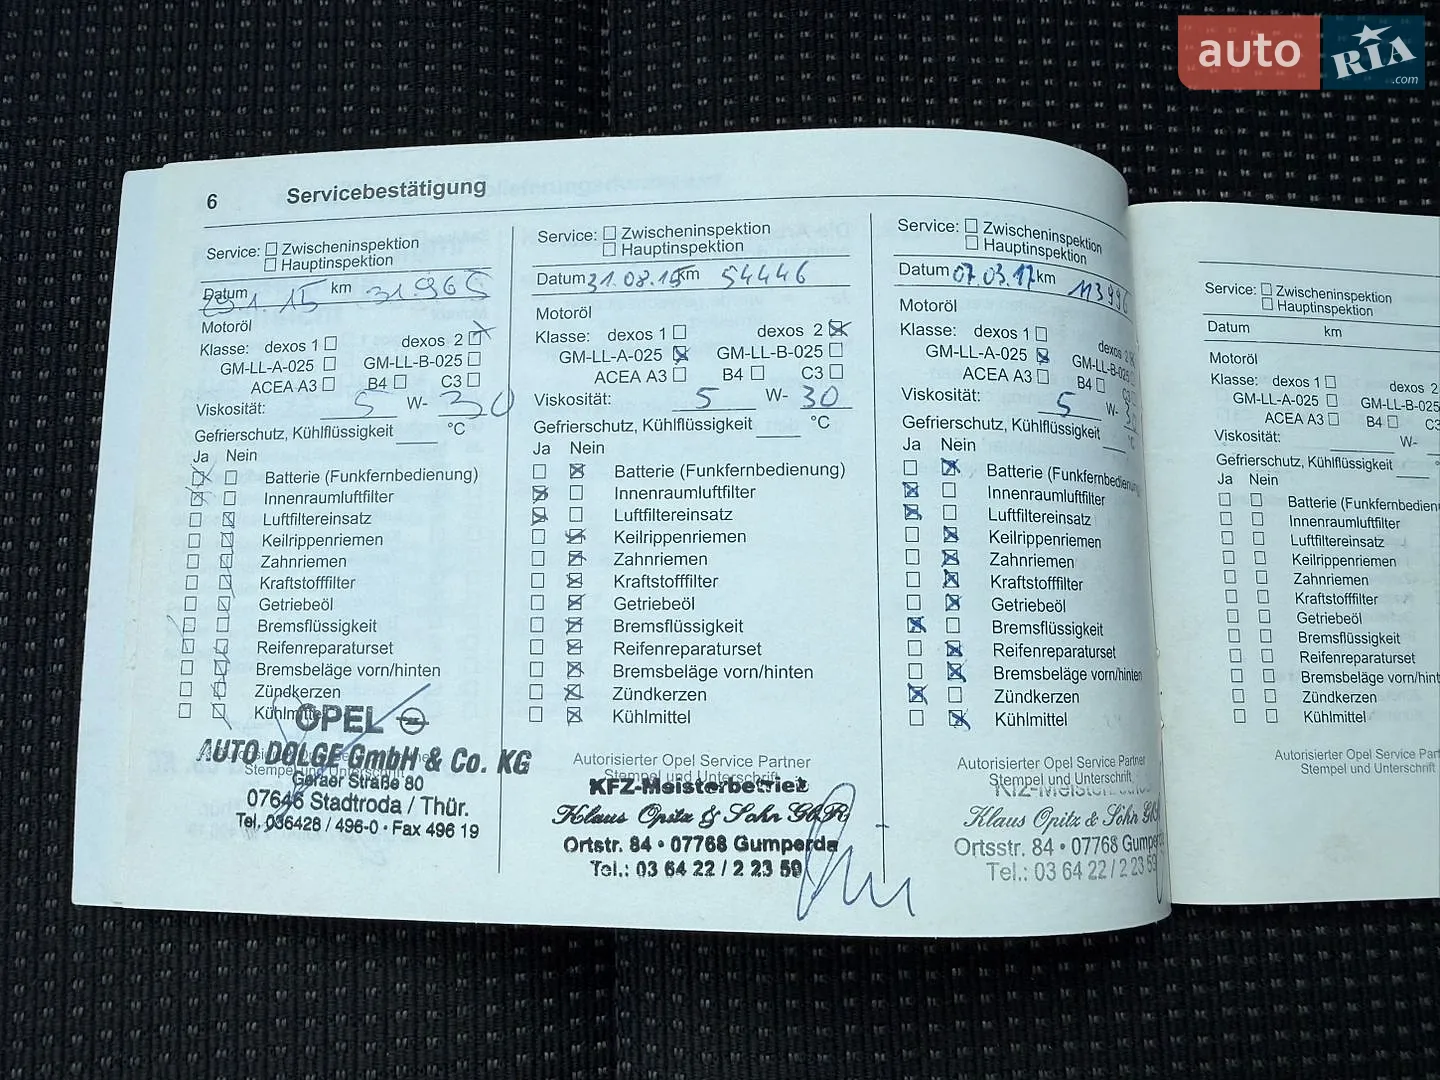 auto RIA .com
6 Servicebestätigung
Service: Zwischeninspektion
Hauptinspektion
Datum .1.15 km 31.965
Motoröl
Klasse: dexos 1 dexos 2
GM-LL-A-025 GM-LL-B-025
ACEA A3 B4 C3
Viskosität: 5 W- 30
Gefrierschutz, Kühlflüssigkeit °C
Ja Nein
Batterie (Funkfernbedienung)
Innenraumluftfilter
Luftfiltereinsatz
Keilrippenriemen
Zahnriemen
Kraftstofffilter
Getriebeöl
Bremsflüssigkeit
Reifenreparaturset
Bremsbeläge vorn/hinten
Zündkerzen
Kühlmittel
OPEL
AUTO DOLGE GmbH & Co. KG
Stempel und Unterschrift
Geraer Straße 80
07646 Stadtroda / Thür.
Tel. 036428 / 496-0 • Fax 496 19
Service: Zwischeninspektion
Hauptinspektion
Datum 31.08.15 km 54446
Motoröl
Klasse: dexos 1 dexos 2
GM-LL-A-025 GM-LL-B-025
ACEA A3 B4 C3
Viskosität: 5 W- 30
Gefrierschutz, Kühlflüssigkeit °C
Ja Nein
Batterie (Funkfernbedienung)
Innenraumluftfilter
Luftfiltereinsatz
Keilrippenriemen
Zahnriemen
Kraftstofffilter
Getriebeöl
Bremsflüssigkeit
Reifenreparaturset
Bremsbeläge vorn/hinten
Zündkerzen
Kühlmittel
Autorisierter Opel Service Partner
Stempel und Unterschrift
KFZ-Meisterbetrieb
Klaus Opitz & Sohn GbR
Ortstr. 84 • 07768 Gumperda
Tel.: 03 64 22 / 2 23 59
Service: Zwischeninspektion
Hauptinspektion
Datum 07.03.17 km 113996
Motoröl
Klasse: dexos 1 dexos 2
GM-LL-A-025 GM-LL-B-025
ACEA A3 B4 C3
Viskosität: 5 W- 30
Gefrierschutz, Kühlflüssigkeit °C
Ja Nein
Batterie (Funkfernbedienung
Innenraumluftfilter
Luftfiltereinsatz
Keilrippenriemen
Zahnriemen
Kraftstofffilter
Getriebeöl
Bremsflüssigkeit
Reifenreparaturset
Bremsbeläge vorn/hinten
Zündkerzen
Kühlmittel
Autorisierter Opel Service Partner
Stempel und Unterschrift
Klaus Opitz & Sohn GbR
Ortsstr. 84 • 07768 Gumperda
Tel.: 03 64 22 / 2 23 59
Service: Zwischeninspektion
Hauptinspektion
Datum km
Motoröl
Klasse: dexos 1 dexos 2
GM-LL-A-025 GM-LL-B-025
ACEA A3 B4 C3
Viskosität: W-
Gefrierschutz, Kühlflüssigkeit
Ja Nein
Batterie (Funkfernbedien
Innenraumluftfilter
Luftfiltereinsatz
Keilrippenriemen
Zahnriemen
Kraftstofffilter
Getriebeöl
Bremsflüssigkeit
Reifenreparaturset
Bremsbeläge vorn/hint
Zündkerzen
Kühlmittel
Autorisierter Opel Service Part
Stempel und Unterschrift